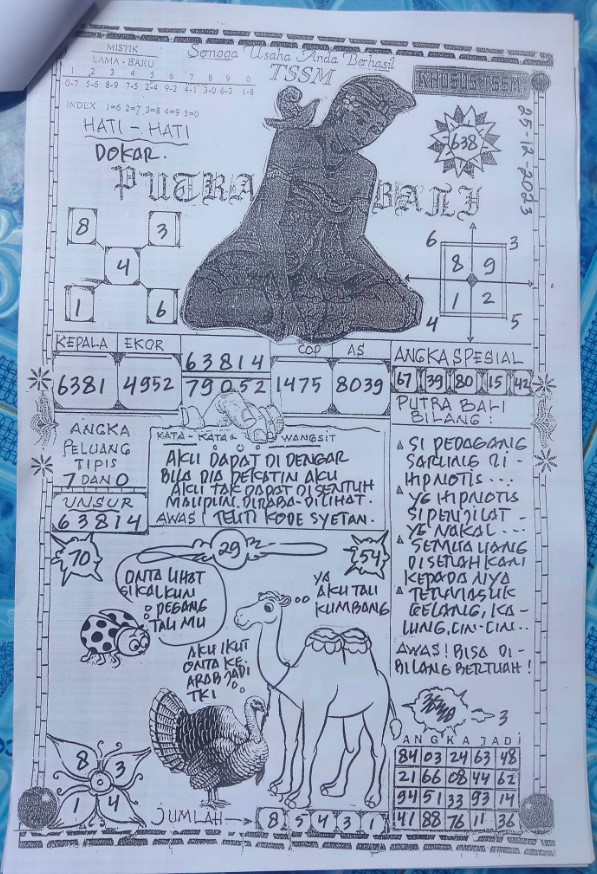 MISTIK
LAMA - BARU
1 2 3 4 5 6 7 8 9 0
0-7 5-6 8-9 7-5 2-4 9-2 4-1 3-0 6-3 1-8
INDEX 1=6 2=7 3=8 4=9 5=0
Semoga Usaha Anda Berhasil
TSSM
KHUSUS TSSM
25-12-2023
638
HATI - HATI
DOKAR.
PUTRA BALI
8 3
4
1 6
6 3
8 9
1 2
4 5
KEPALA EKOR
6381 4952
63814
79052
COP AS
1475 8039
ANGKA SPESIAL
67 39 80 15 42
ANGKA
PELUANG
TIPIS
7 DAN 0
UNSUR
63814
KATA - KATA WANGSIT
AKU DAPAT DI DENGAR
BILA DIA DEKATIN AKU
AKU TAK DAPAT DI SENTUH
MAUPUN DIRABA-DILIHAT.
AWAS! TELITI KODE SYETAN.
PUTRA BALI
BILANG:
SI PEDAGANG
SARUNG DI -
HIPNOTIS ....
YG HIPNOTIS
SI PENJILAT -
YG NAKAL ....
SEMUA UANG
DISERAHKAN
KEPADANYA
TERMASUK
GELANG, KA -
LUNG, CIN-CIN..
AWAS! BISA DI -
BILANG BERTUAH!
70
29
54
ONTA LIHAT
SI KALKUN
PEGANG
TALI MU
YA
AKU TALI
KUMBANG
AKU IKUT
ONTA KE-
ARAB JADI
TKI
8 3
1 4
JUMLAH → 8 5 4 3 1
3
ANGKA JADI
84 03 24 63 48
21 66 08 44 62
94 51 33 93 14
41 88 76 11 36